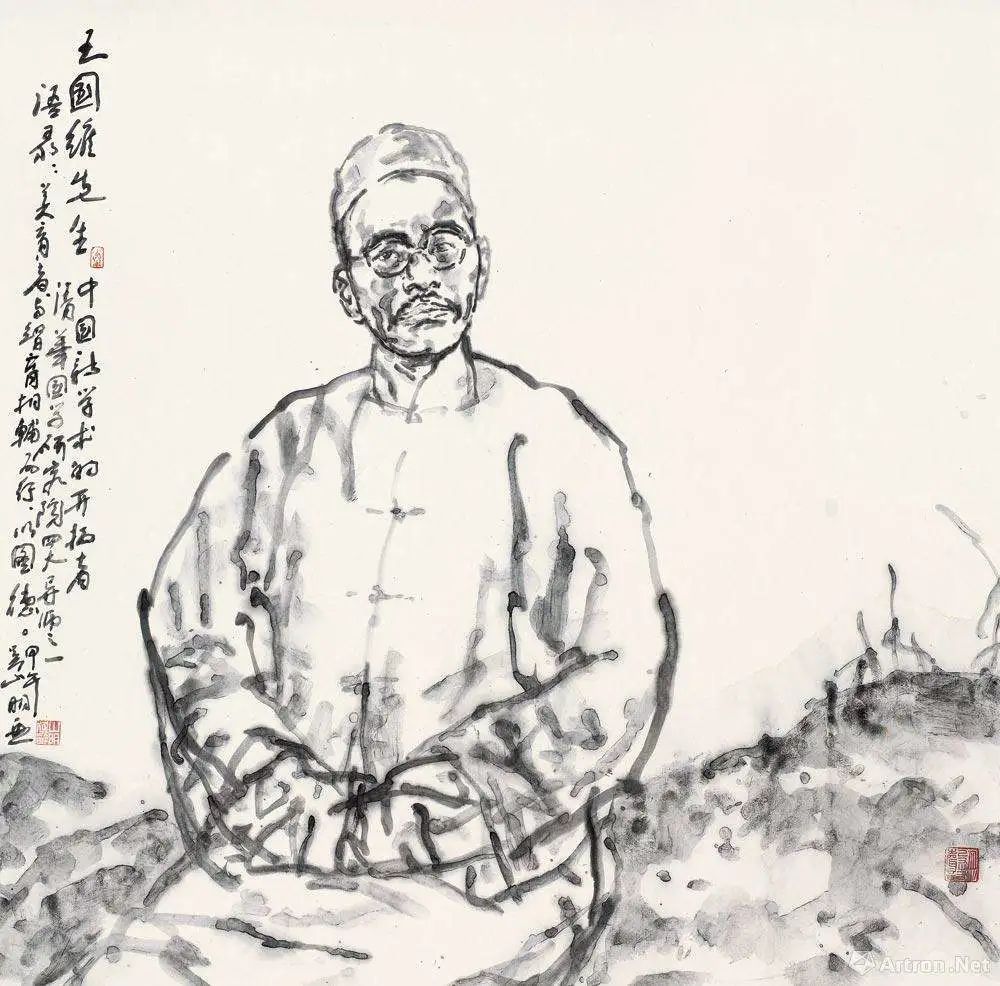 王國維先生
中国新学术的开拓者
清華国学研究院四大导师之一
語录：美育者与智育相輔而行，以圖德。
甲午
山明画
Artron.Net